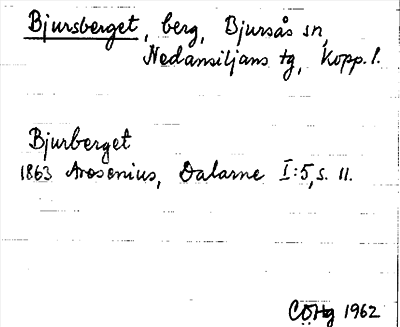 Bjursberget, berg, Bjursås sn,
Nedansiljans tg, Kopp. l.
Bjurberget
1863 Arosenius, Dalarne I:5, s. 11.
CÖHg 1962